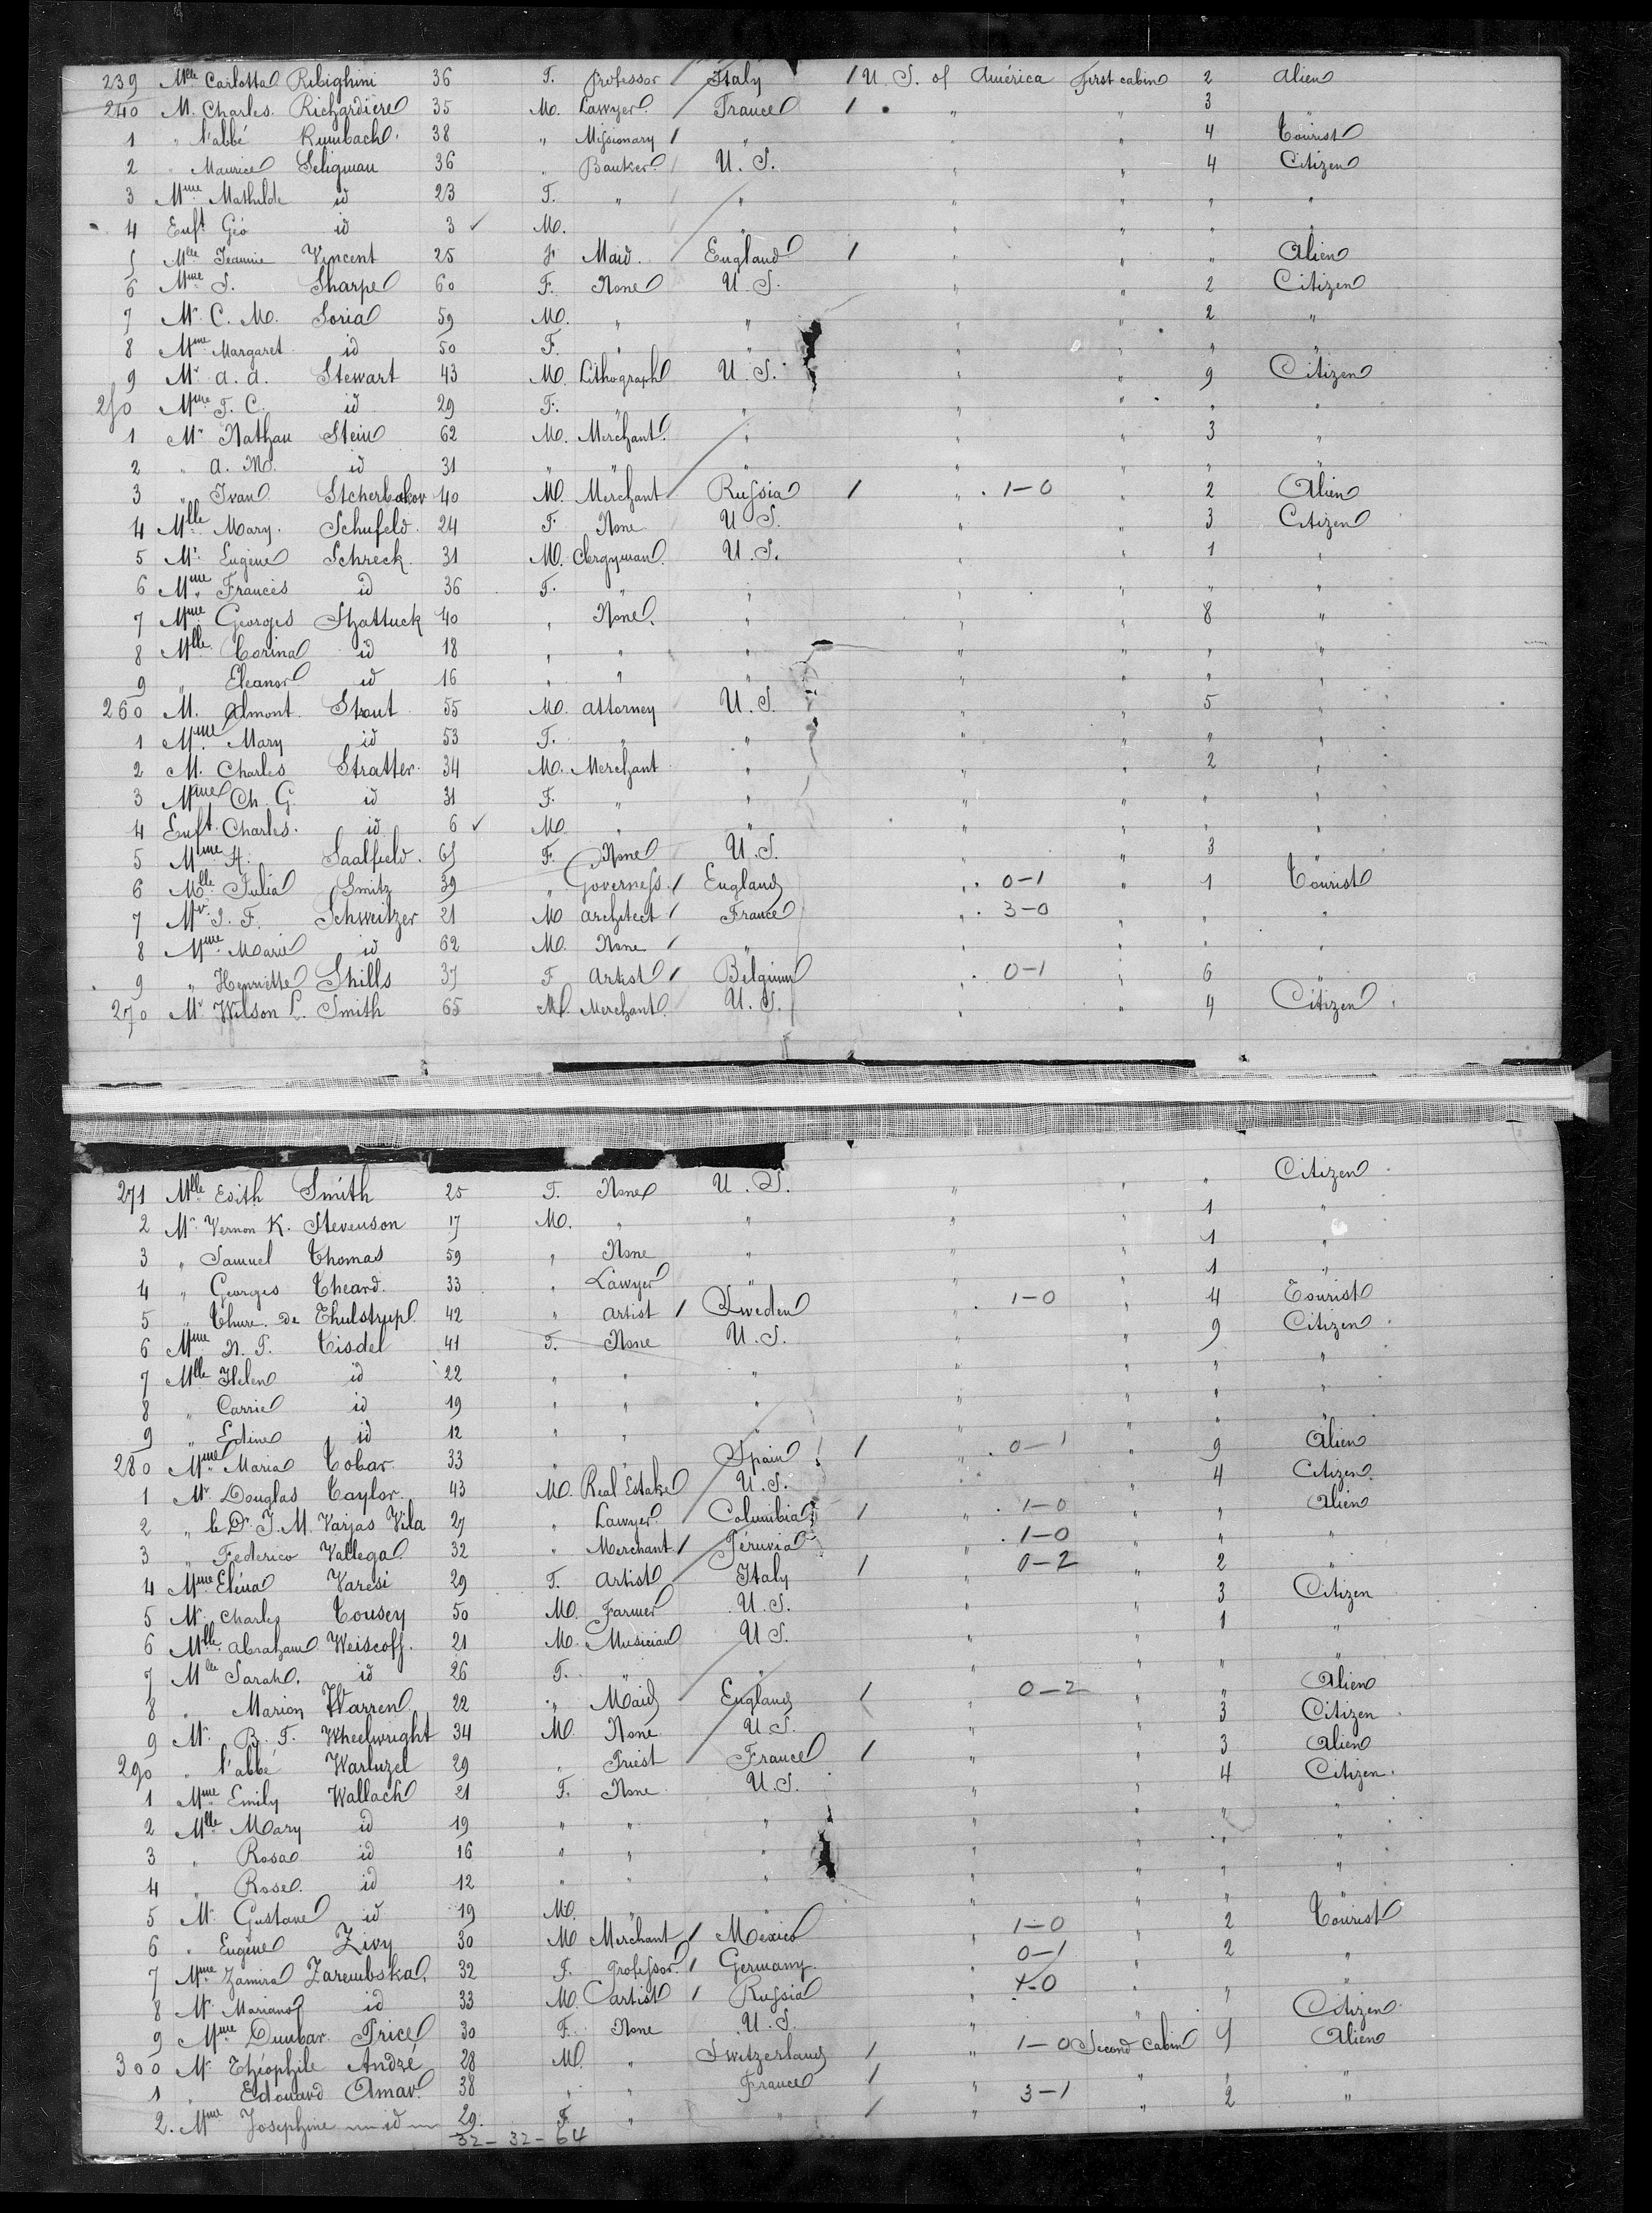 239 Mlle Carlotta Ribighini 36 F. Professor Italy / U. S. of América First cabin 2 Alien
240 M. Charles. Richardière 35 M. Lawyer. France / " " 3
1 " l'abbé Rumbach. 38 " Missionary / " " " 4 Tourist
2 " Maurice Seligman 36 " Banker. U. S. " " 4 Citizen
3 Mme Mathilde id 23 F. " " " " " "
4 Enft Géo id 3 ✓ M. " " " " "
5 Mlle Jeannie Vincent 25 F Maid. England / " " " Alien
6 Mme S. Sharpe 60 F. None U. S. " " 2 Citizen
7 Mr C. M. Soria 59 M. " " " " 2 "
8 Mme Margaret id 50 F. " " " " " "
9 Mr A. A. Stewart 43 M. Lithograph U. S. " " 9 Citizen
250 Mme F. C. id 29 F. " " " " " "
1 Mr Nathan Stein 62 M. Merchant. " " " 3 "
2 " A. M. id 31 " " " " " " "
3 " Ivan Stcherbakov 40 M. Merchant Russia / " 1-0 " 2 Alien
4 Mlle Mary. Schufeld. 24 F None U S. " " 3 Citizen
5 Mr Eugène Schreck. 31 M. Clergyman. U. S. " " 1 "
6 Mme Francis id 36 F. " " " " " "
7 Mme Georges Shattuck 40 " None. " " " 8 "
8 Mlle Corina id 18 " " " " " " "
9 " Eleanor id 16 " " " " " " "
260 M. Almont. Stout 55 M. Attorney U. S. " " 5 "
1 Mme Mary id 53 F. " " " " " "
2 M. Charles Stratter. 34 M. Merchant " " " 2 "
3 Mme Ch. G. id 31 F. " " " " " "
4 Enft. Charles. id 6 ✓ M. " " " " " "
5 Mme H. Saalfield. 65 F. None U. S. " " 3 "
6 Mlle Julia Smitz 39 " Governess. / England " 0-1 " 1 Tourist
7 Mr J. F. Schweitzer 21 M Architect / France " 3-0 " " "
8 Mme Marie id 62 M. None / " " " " "
9 " Henriette Shills 37 F Artist / Belgium " 0-1 " 6 "
270 Mr Wilson L. Smith 65 M. Merchant. U. S. " " 4 Citizen
271 Mlle Edith Smith 25 F. None U. S. " " " Citizen
2 Mr Vernon K. Stevenson 17 M. " " " " 1 "
3 " Samuel Thomas 59 " None " " " 1 "
4 " Georges Theard. 33 " Lawyer " " " 1 "
5 " Thure. de Thulstrup. 42 " Artist / Sweden " 1-0 " 4 Tourist
6 Mme N. T. Tisdel 41 F. None U. S. " " 9 Citizen
7 Mlle Helen id 22 " " " " " " "
8 " Carrie id 19 " " " " " " "
9 " Edine id 12 " " " " " " "
280 Mme Maria Tobar. 33 " " Spain / " 0-1 " 9 Alien
1 Mr Douglas Taylor. 43 M. Real Estate U. S. " " 4 Citizen
2 " le Dr J. M. Varjas Vila 27 " Lawyer. Columbia / " 1-0 " " Alien
3 " Federico Vallega. 32 " Merchant / Péruvia " 1-0 " " "
4 Mme Eléna Varesi 29 F. Artist Italy / " 0-2 " 2 "
5 Mr Charles Tousey 50 M. Farmer U. S. " " 3 Citizen
6 Mlle Abraham Weiscoff. 21 M. Musician U S. " " 1 "
7 Mlle Sarah. id 26 F. " " " " " "
8 " Marion Warren. 22 " Maid England / " 0-2 " " Alien
9 Mr B. F. Wheelwright 34 M. None U. S. " " 3 Citizen
290 " l'abbé Warluzel 29 " Priest France / " " 3 Alien
1 Mme Emily Wallach 21 F. None U. S. " " 4 Citizen.
2 Mlle Mary id 19 " " " " " " "
3 " Rosa id 16 " " " " " " "
4 " Rose. id 12 " " " " " " "
5 Mr Gustave id 19 M. " " " " " "
6 " Eugène Zivy 30 M Merchant / Mexico " 1-0 " 2 Tourist
7 Mme Zamira Zarembska. 32 F. Professor. / Germany. " 0-1 " 2 "
8 Mr Mariano id 33 M. Artist / Russia " 1-0 " " "
9 Mme Dunbar Price 30 F. None U. S. " " " Citizen
300 Mr Théophile André 28 M. " Switzerland / " 1-0 Second Cabin 4 Alien
1 " Edouard Amar. 38 " " France / " " " "
2. Mme Josephine id 29. F " " / " 3-1 " 2 "
32 - 32 - 64